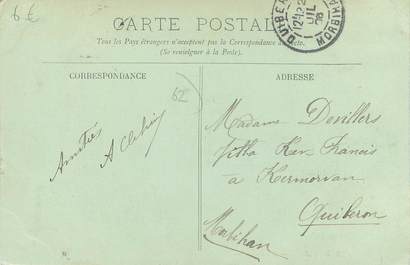 6 €
CARTE POSTALE
Tous les Pays étrangers n'acceptent pas la Correspondance au Recto.
(Se renseigner à la Poste).
QUIBERON
MORBIHAN
CORRESPONDANCE
ADRESSE
62
Amitiés
A
Madame Devillers
Villa Ker Francis
a Kermorvan
Quiberon
Morbihan